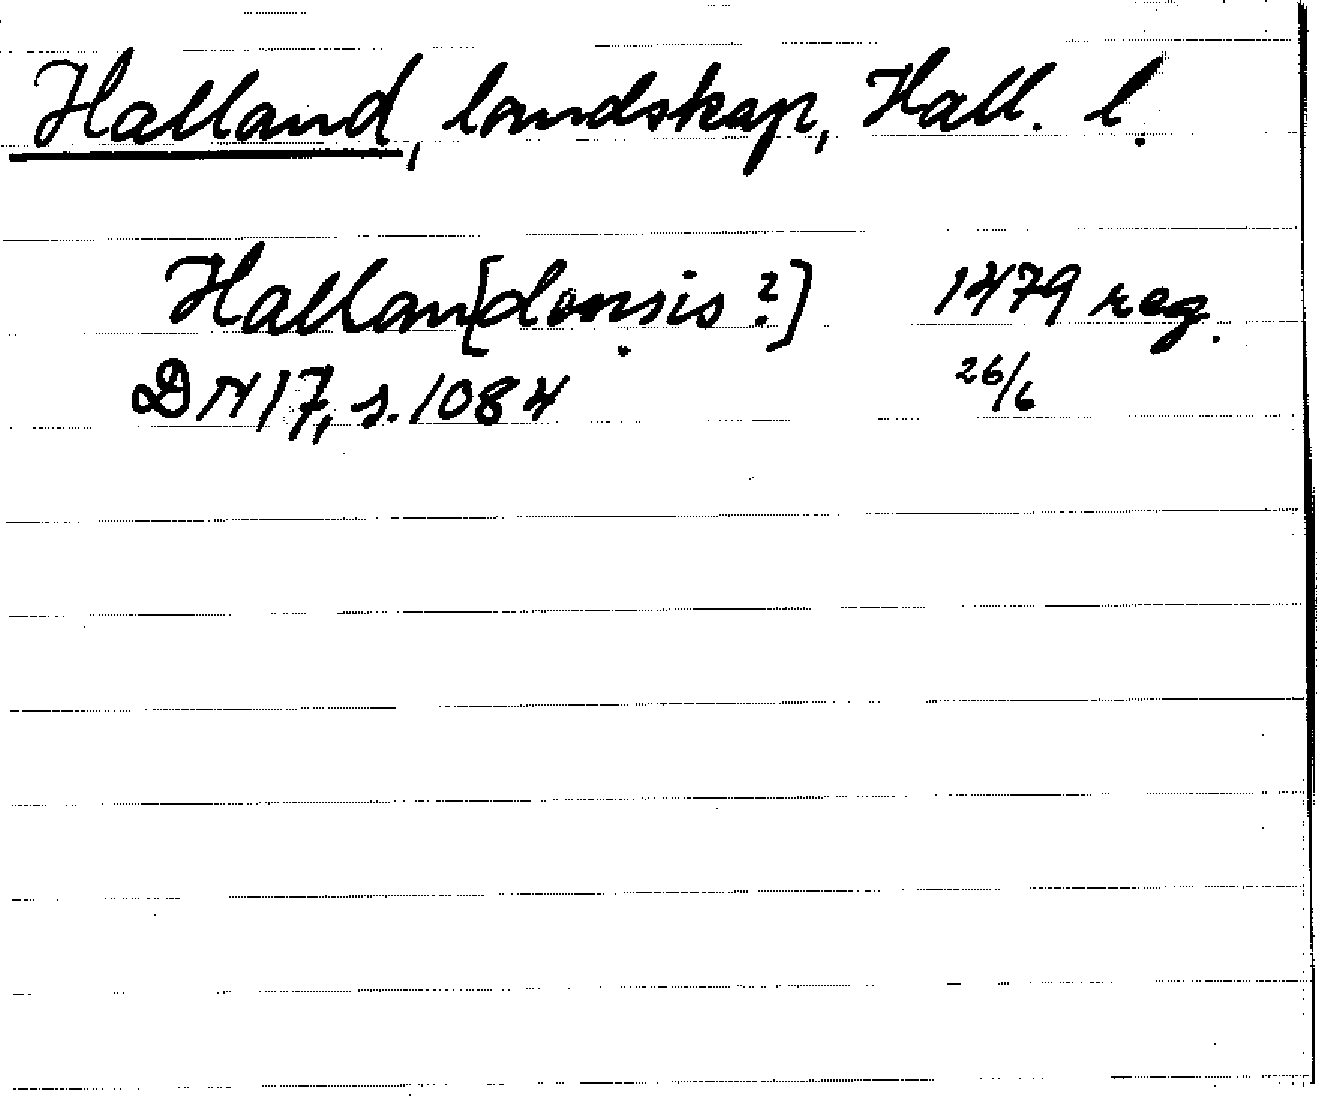 Halland, landskap, Hall. l.
Hallan[densis?] 1479 reg.
DN 17, s. 1084 26/6